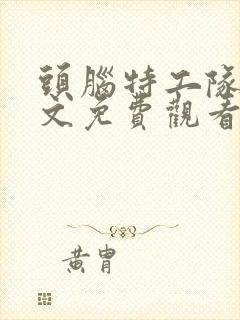 頭腦特工隊
文免費觀看
黃胄